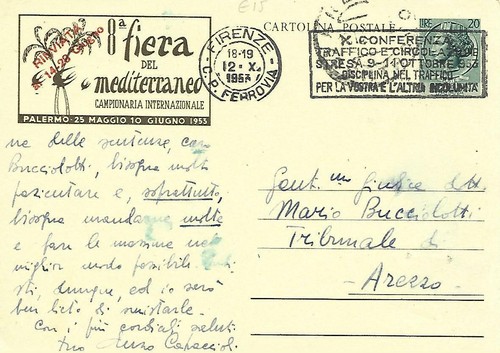 E15
RINVIATA
AL 14-28 Giugno
8ª fiera
DEL
mediterraneo
CAMPIONARIA INTERNAZIONALE
PALERMO - 25 MAGGIO 10 GIUGNO 1953
CARTOLINA POSTALE
LIRE 20
FIRENZE
18-19
12-X
1953
FERROVIA
X CONFERENZA
TRAFFICO E CIRCOLAZIONE
STRESA 9-14 OTTOBRE 953
DISCIPLINA NEL TRAFFICO
PER LA VOSTRA E L'ALTRUI INCOLUMITÀ
ne delle sentenze, caro
Bucciolotti, bisogna molto
faticare e, soprattutto,
bisogna mandarne molte
e fare le massime nel
miglior modo possibile.
sti, dunque, ed io sarò
ben lieto di
Con i più cordiali saluti
tuo Enzo Capaccioli
Gent.mo Giudice dott.
Mario Bucciolotti
Tribunale di
- Arezzo -